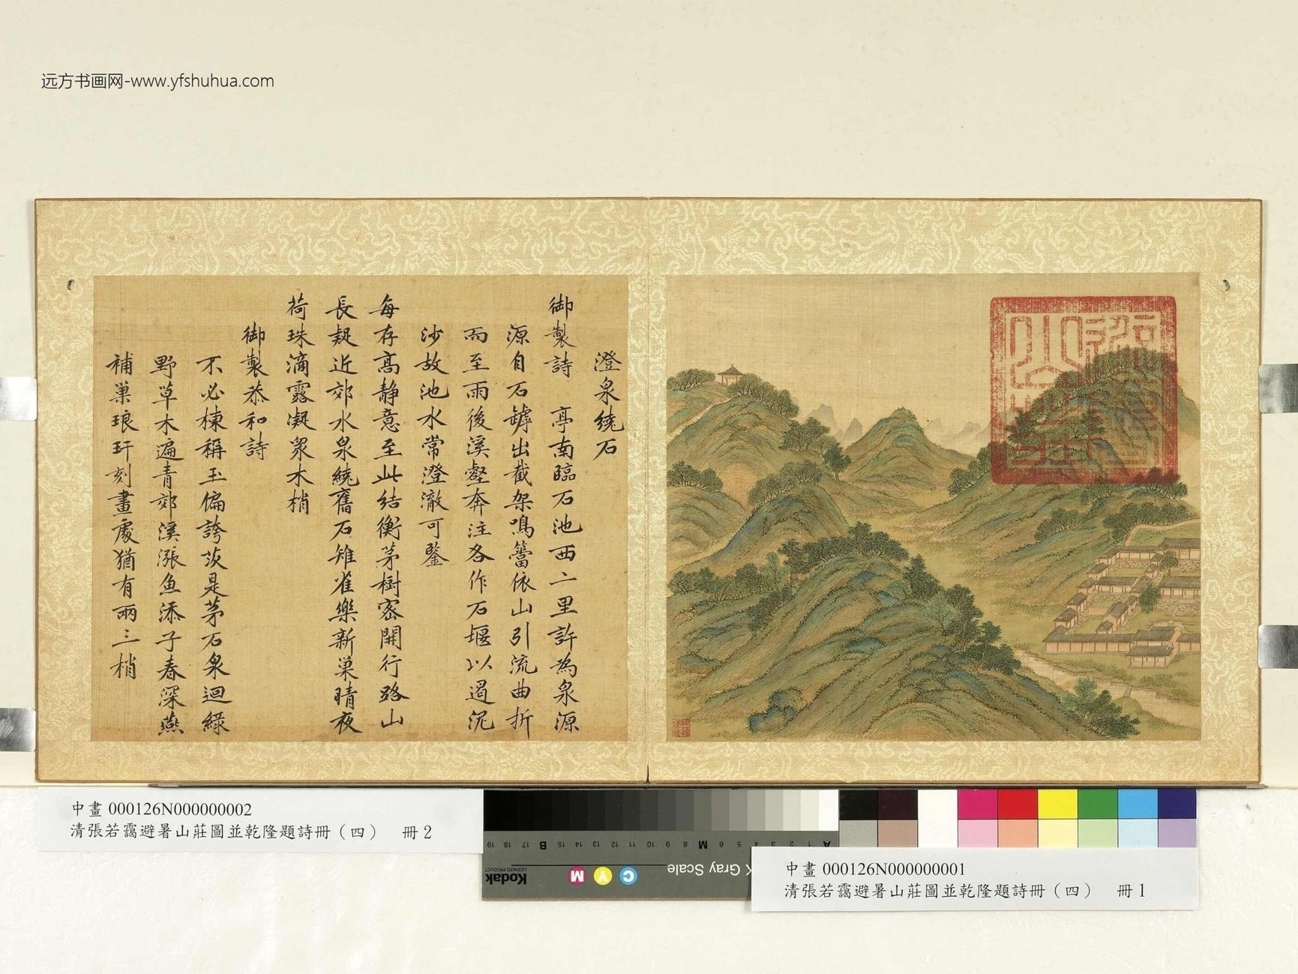 远方书画网-www.yfshuhua.com
澄泉繞石
御製詩 亭南臨石池西二里許為泉源
源自石罅出截架鳴籌依山引流曲折
而至雨後溪壑奔注各作石堰以遏泥
沙故池水常澄澈可鑒
每存高静意至此結衡茅樹密開行路山
長疑近郊水泉繞舊石雉雀樂新巢晴夜
荷珠滴露凝眾木梢
御製恭和詩
不必棟稱玉偏誇茨是茅石泉迴緑
野草木遍青郊溪漲魚添子春深燕
補巢琅玕刻畫處猶有兩三梢
中畫 000126N000000002
清張若靄避暑山莊圖並乾隆題詩冊（四） 冊 2
中畫 000126N000000001
清張若靄避暑山莊圖並乾隆題詩冊（四） 冊 1
Kodak
LICENSED PRODUCT
K Gray Scale
C Y M
A 1 2 3 4 5 6 M 8 9 10 11 12 13 14 15 B 17 18 19